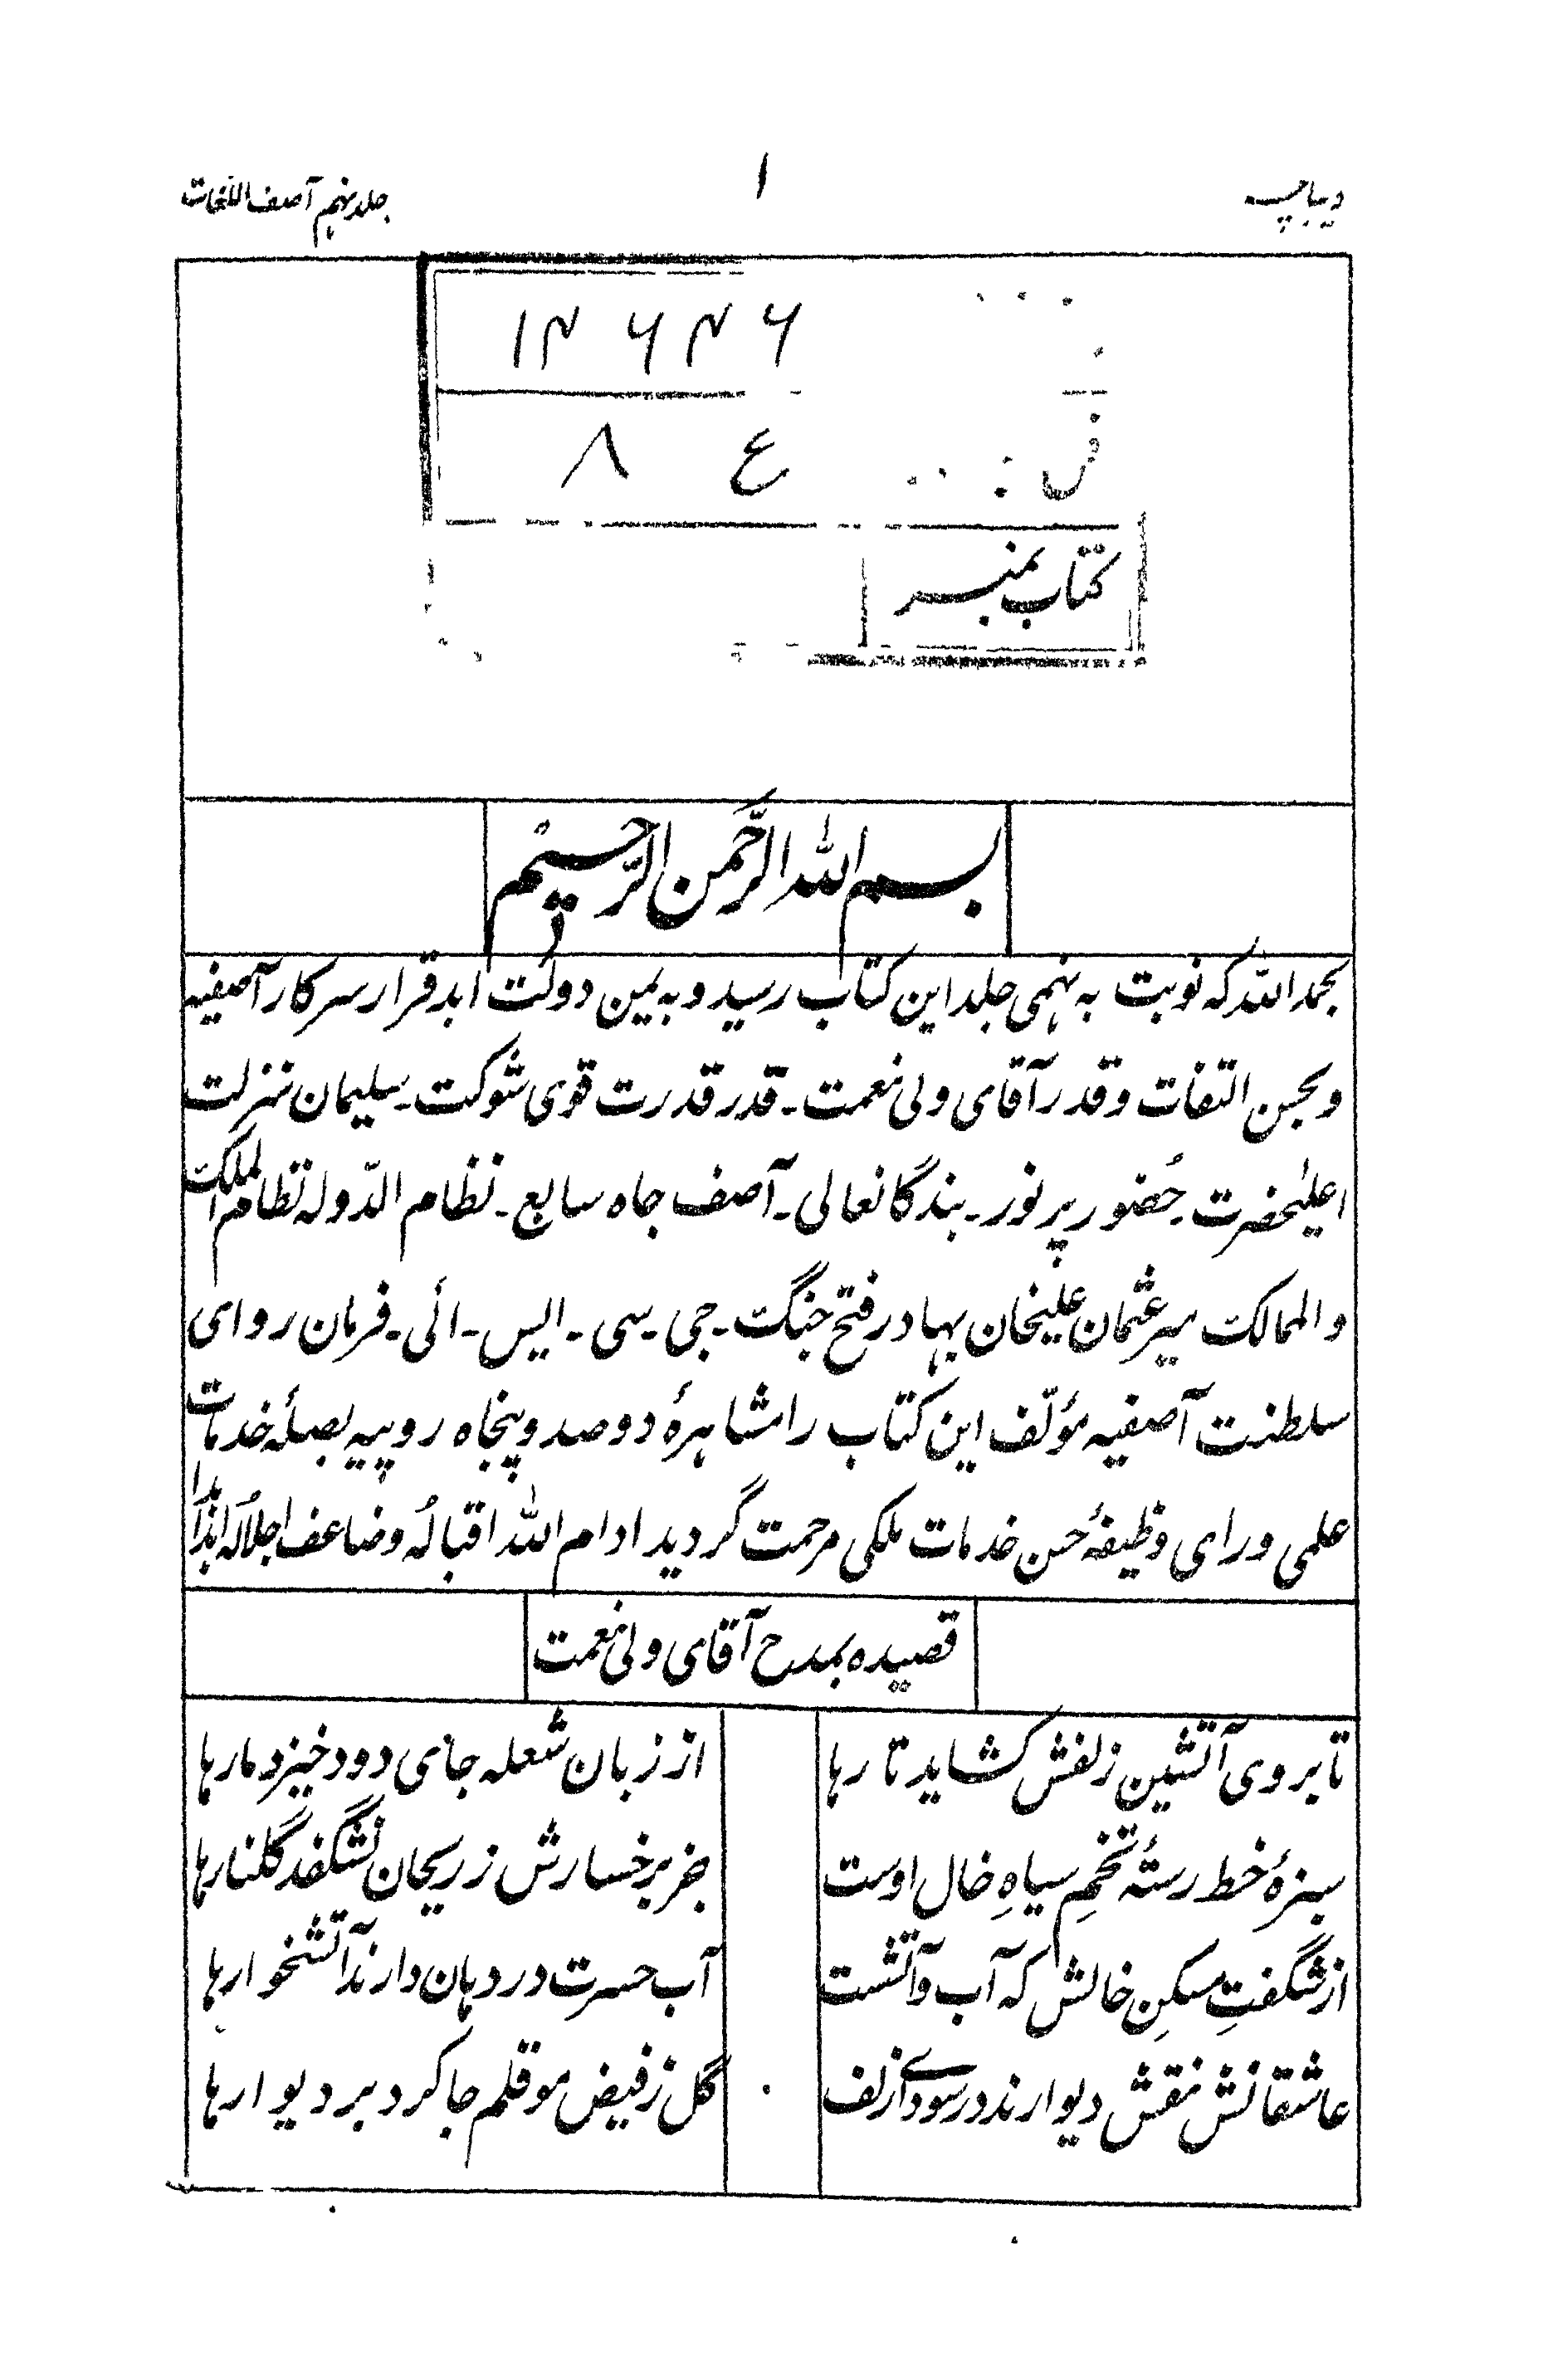 دیباچہ
۱
جلد نہم آصف اللغات
۱۴۶۴۶
ع ۸
کتاب نمبر
بسم اللہ الرَّحمن الرَّحیم
بحمد اللہ کہ نوبت بہ نہمی جلد این کتاب رسید و بہ یمن دولت ابد قرار سرکار آصفیہ
و بحسن التفات و قدر آقای ولی نعمت ۔ قدر قدرت قوی شوکت ۔ سلیمان منزلت
اعلیٰحضرت ۔ حُضور پر نور ۔ بندگانعالی ۔ آصف جاہ سابع ۔ نظام الدّولہ نظام الملک
و الممالک میر عثمان علیخان بہادر فتح جنگ ۔ جی ۔ سی ۔ ایس ۔ ائی ۔ فرمان روای
سلطنت آصفیہ مؤلّف این کتاب را مشاہرۂ دو صد و پنجاہ روپیہ بصلۂ خدمات
علمی ورای وظیفۂ حسن خدمات ملکی مرحمت گردید ادام اللہ اقبالہُ و ضاعف اجلالَہُ ابدًا ابدًا
قصیدہ بمدح آقای ولی نعمت
تا بروی آتشین زلفش کشاید تارہا
از زبان شعلہ جای دود خیزد مارہا
سبزۂ خط رستۂ تخمِ سیاہِ خال اوست
جز برخسارش ز ریحان نشگفد گلنارہا
از شگفتِ مسکنِ خالش کہ آب و آتشست
آب حسرت در دہان دارند آتشخوارہا
عاشقانش نقش دیوارند در سودای زلف
گل ز فیض مو قلم جا کرد بر دیوارہا